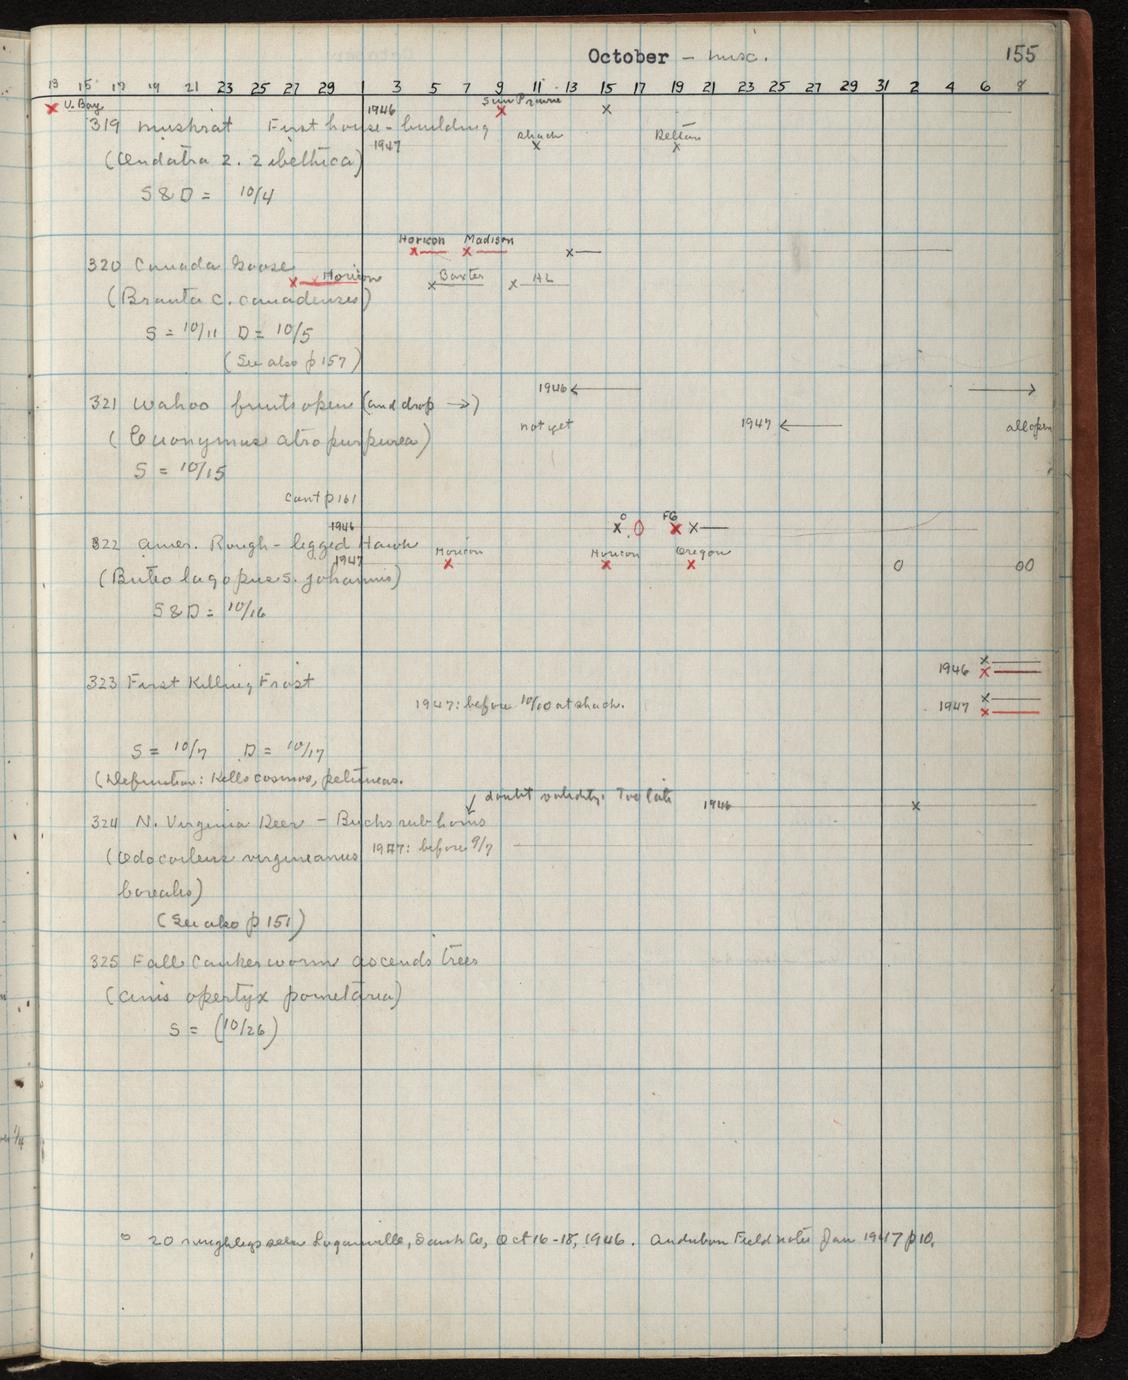 October - misc. 155
13 15 17 19 21 23 25 27 29 1 3 5 7 9 11 13 15 17 19 21 23 25 27 29 31 2 4 6 8
x U. Bay 1946 Sun Prairie x x
319 Muskrat First house-building shack x Kelton x
(Ondatra z. zibethica) 1947
S & D = 10/4
Horicon Madison
x x x
320 Canada Goose
x x Horicon x Baxter x AL
(Branta c. canadensis)
S = 10/11 D = 10/5
(See also p 157)
1946 ← →
321 Wahoo fruits open (and drop →)
not yet 1947 ← all open
(Euonymus atropurpurea)
S = 10/15
cont p 161
1946 x o 0 FG x x
322 Amer. Rough-legged Hawk
1947 Horicon x Horicon x Oregon x 0 00
(Buteo lagopus s. johannis)
S & D = 10/16
1946 x
x
323 First Killing Frost
1947: before 10/10 at shack. 1947 x
x
S = 10/7 D = 10/17
(Definition: Kills cosmos, petunias.
↙ doubt validity. Too late 1946 x
324 N. Virginia Deer - Bucks rub horns
(Odocoileus virginianus 1947: before 9/7
borealis)
(See also p 151)
325 Fall Cankerworm ascends trees
S = (10/26)
o 20 roughlegs seen Loganville, Sauk Co, Oct 16-18, 1946. Audubon Field notes Jan 1947 p 10.